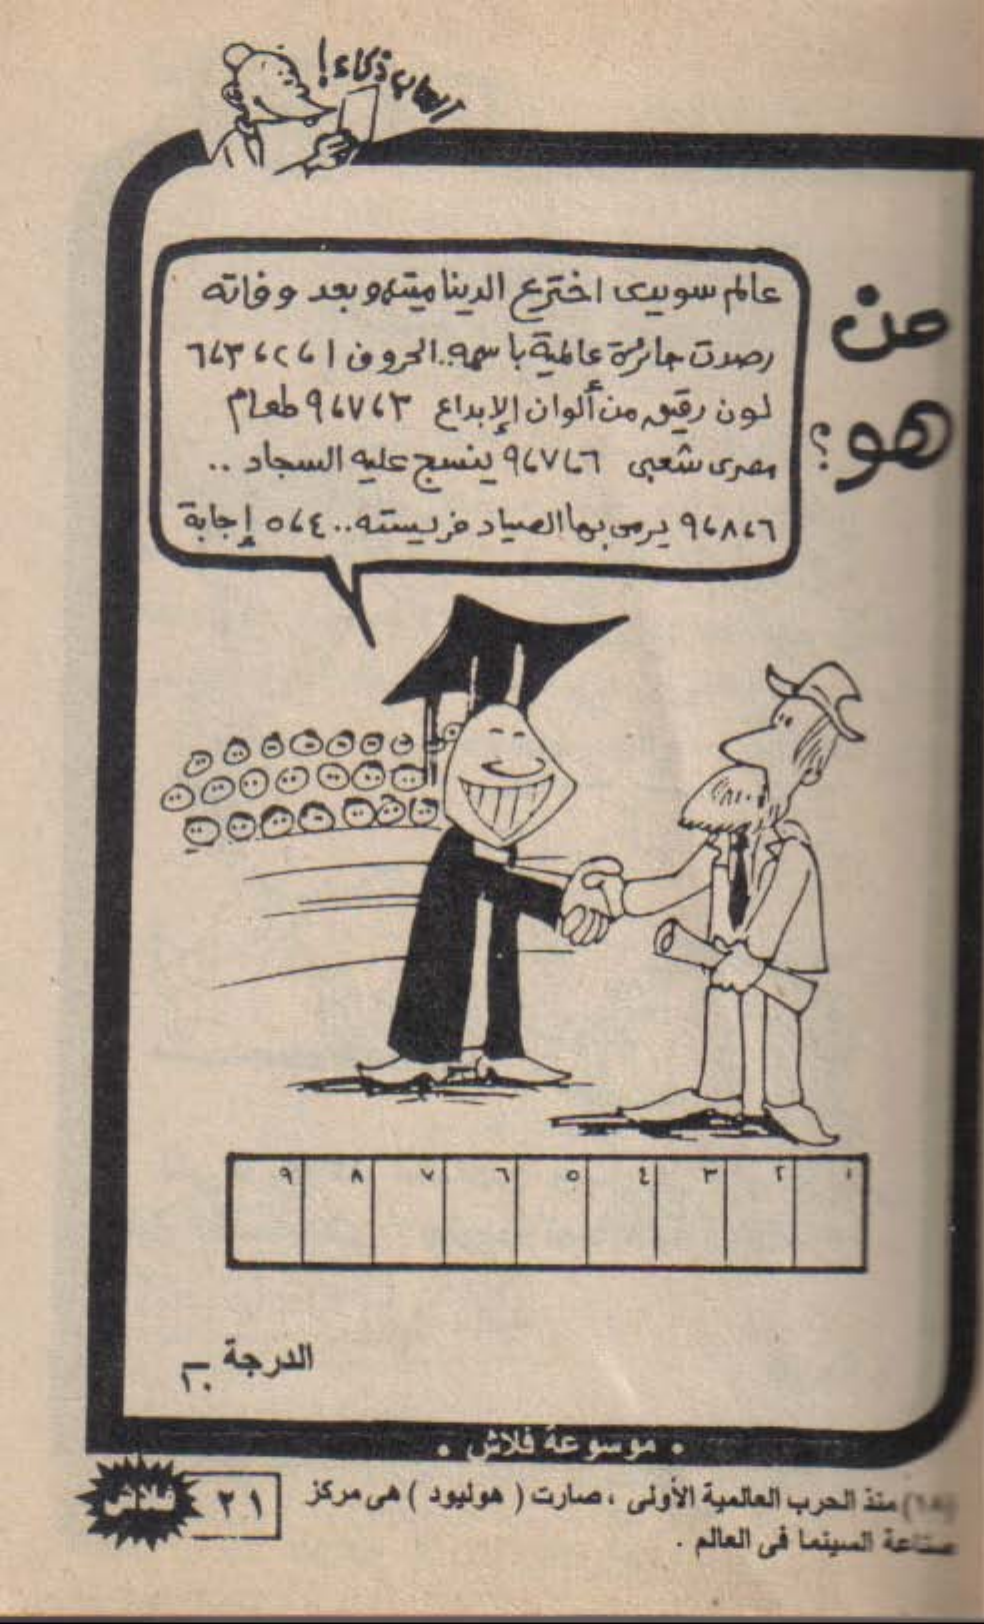 ألعاب ذكاء!
من
هو؟
عالم سويدى اخترع الديناميت، وبعد وفاته
رصدت جائزة عالمية باسمه.. الحروف ١،٢،٣،٦
لون رقيق من ألوان الإبداع ٣،٧،٩ طعام
مصرى شعبى ٦،٧،٩ ينسج عليه السجاد ..
٦،٨،٩ يرمى بها الصياد فريسته.. ٤،٥ إجابة
١ ٢ ٣ ٤ ٥ ٦ ٧ ٨ ٩
الدرجة ١٠
• موسوعة فلاش •
منذ الحرب العالمية الأولى ، صارت ( هوليود ) هى مركز
صناعة السينما فى العالم .
٢١ فلاش